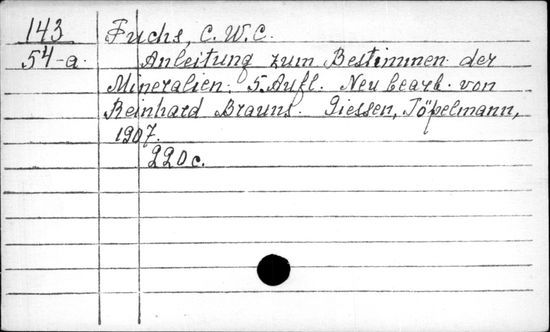 143 Fuchs, C. W. C.
54-a. Anleitung zum Bestimmen der
Mineralien. 5. Aufl. Neu bearb. von
Reinhard Brauns. Giessen, Töpelmann,
1907.
220c.